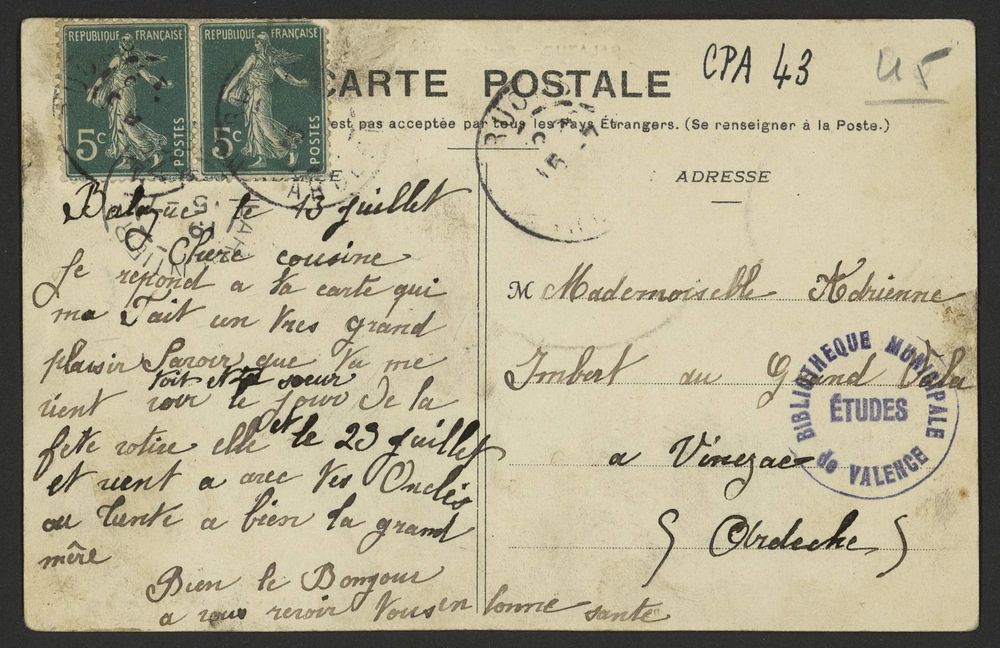 RÉPUBLIQUE FRANÇAISE
5c POSTES
RÉPUBLIQUE FRANÇAISE
5c POSTES
CARTE POSTALE
est pas acceptée par tous les Pays Étrangers. (Se renseigner à la Poste.)
CPA 43
ADRESSE
Balazuc le 13 juillet
Chere cousine
Je repond a ta carte qui
ma Fait un tres grand
plaisir Savoir que tu me
vient voir le jour De la
toit et ta soeur
fete votire elle et le 23 juillet
et vient a avec tes Oncles
ou tente a bien la grand
mère
Bien le Bonjour
a vous revoir tous en bonne santé
M Mademoiselle Adrienne
Imbert au Grand Vala
a Vinezac
(Ardeche)
BIBLIOTHEQUE MUNICIPALE
ÉTUDES
de VALENCE